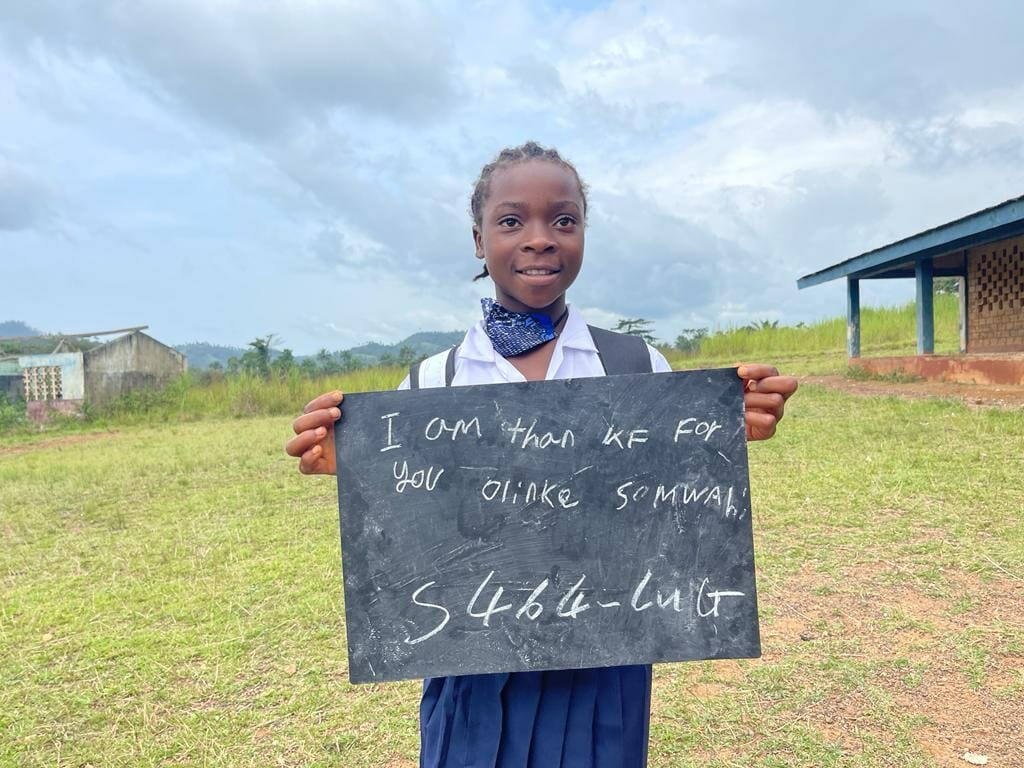 I am than KF For
you olinke somwahi
S464-LuG